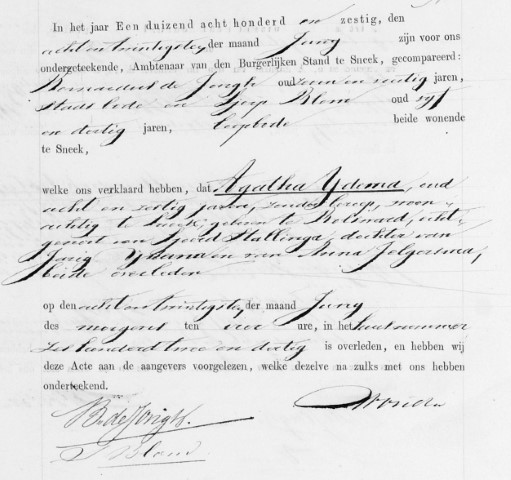 In het jaar Een duizend acht honderd en zestig, den
acht en twintigsten der maand Juny zijn voor ons
ondergeteekende, Ambtenaar van den Burgerlijken Stand te Sneek, gecompareerd:
Bernardus de Jongh oud zeven en zestig jaren,
Stads bode en Blom oud vijf
en dertig jaren, loopbode beide wonende
te Sneek,
welke ons verklaard hebben, dat Agatha Ydema, oud
acht en zestig jaren, zonder beroep, woon-
achtig te Sneek, geboren te Bolsward, echt-
genoot van Sjoerd Hallinga, dochter van
en van Anna Jelgersma,
beide overleden
op den acht en twintigsten der maand Juny
des morgens ten vier ure, in het huis nummer
zes honderd twee en dertig is overleden, en hebben wij
deze Acte aan de aangevers voorgelezen, welke dezelve na zulks met ons hebben
onderteekend.
B. de Jongh.
Blom